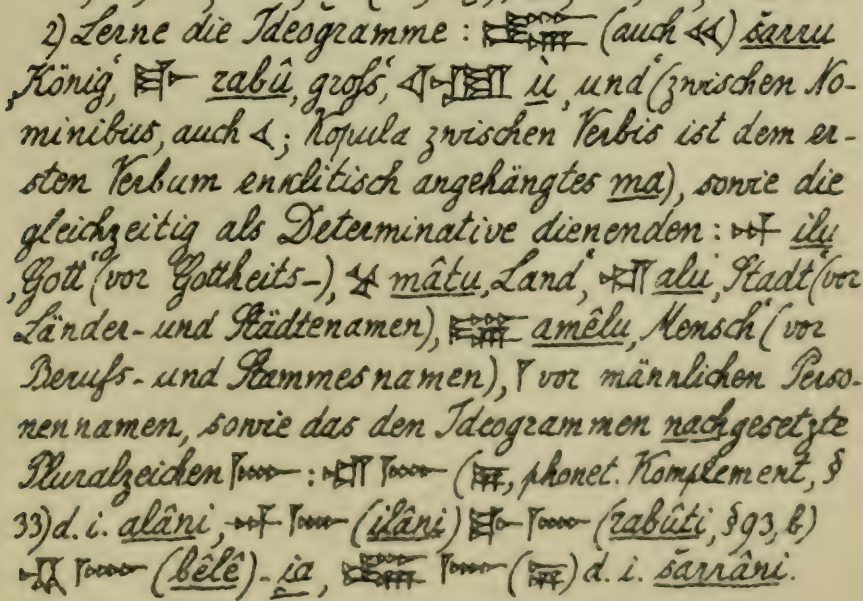 2) Lerne die Ideogramme : 𒈗 (auch 𒌋𒌋) šarru
„König‘, 𒃲 rabû, groß‘, 𒅇 ù „und‘ (zwischen No-
minibus, auch 𒌋; Kopula zwischen Verbis ist dem er-
sten Verbum enklitisch angehängtes ma), sowie die
gleichzeitig als Determinative dienenden : 𒀭 ilu
„Gott‘ (vor Gottheits-), 𒆳 mâtu „Land‘, 𒌷 alu „Stadt‘ (vor
Länder- und Städtenamen), amêlu „Mensch‘ (vor
Berufs- und Stammesnamen), 𒁹 vor männlichen Perso-
nennamen, sowie das den Ideogrammen nachgesetzte
Pluralzeichen 𒈨𒌍 : 𒌷 𒈨𒌍 (𒉌, phonet. Komplement, §
33) d. i. alâni, 𒀭 𒈨𒌍 (ilâni) 𒃲 𒈨𒌍 (rabûti, § 93, b)
𒂗 𒈨𒌍 (bêlê) - ia, 𒈗 𒈨𒌍 (𒉌) d. i. šarrâni.